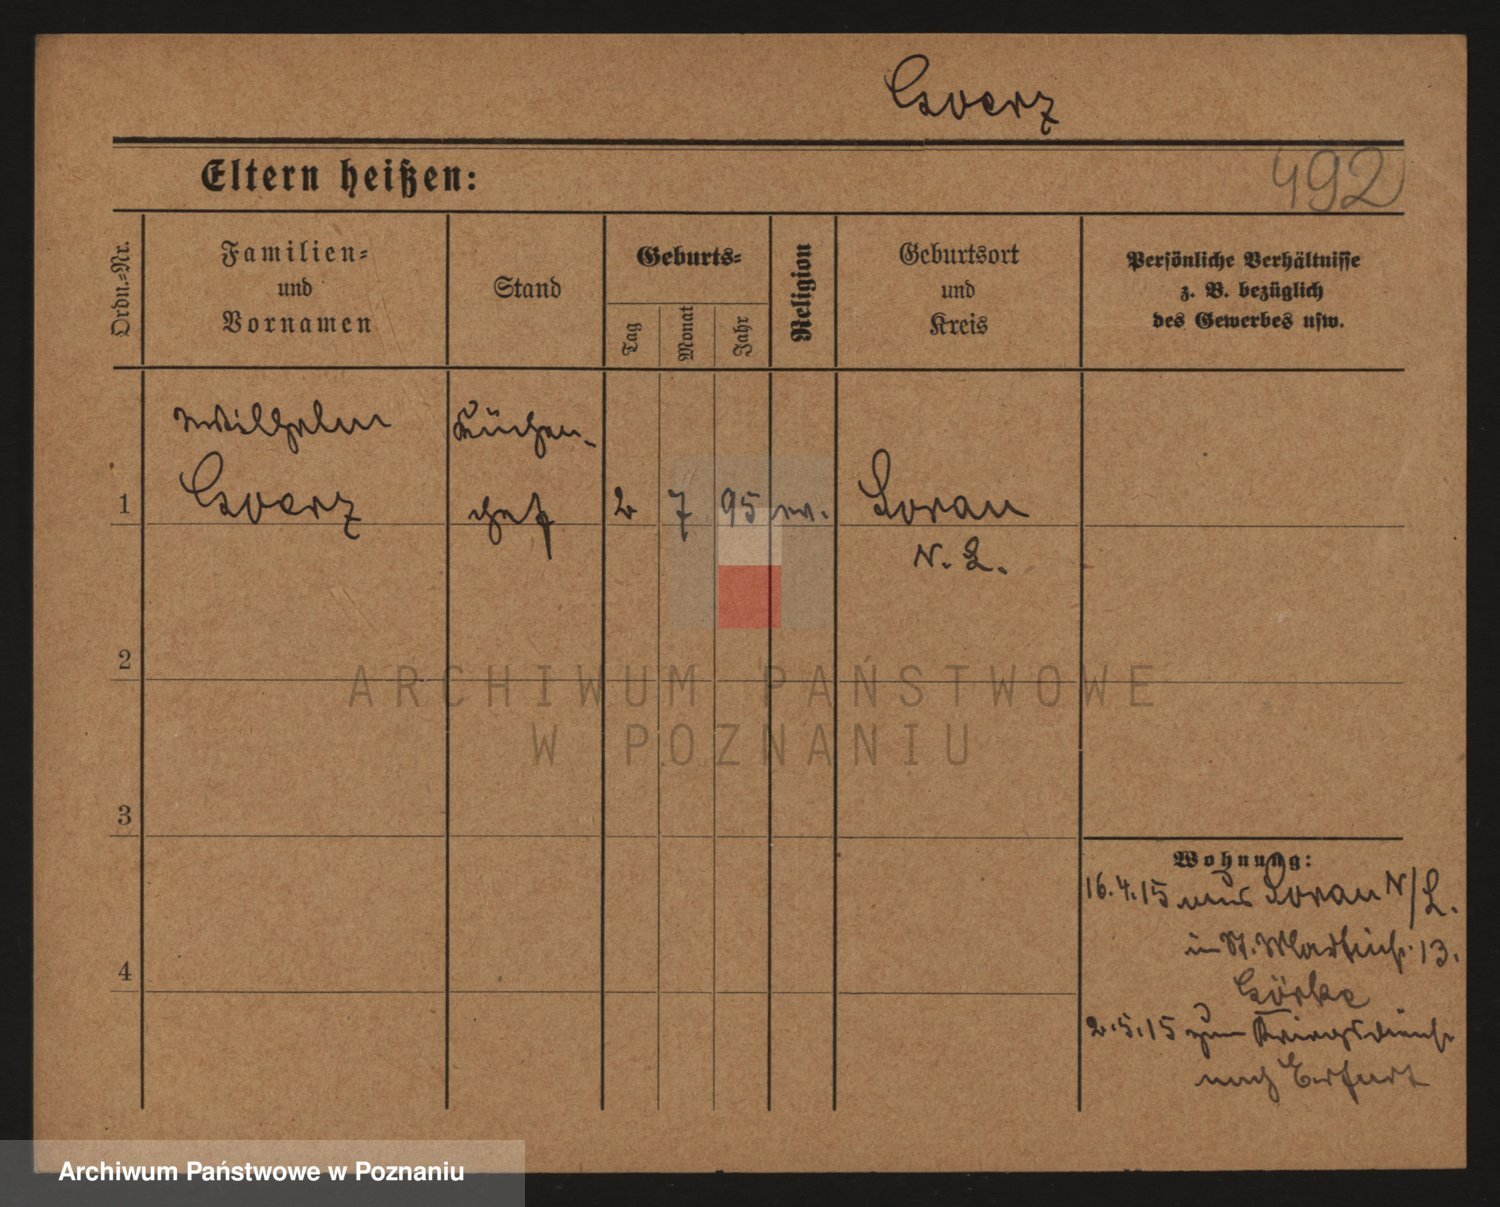 Goerz
Eltern heißen:
492
Ordn.-Nr.
Familien-
und
Vornamen
Stand
Geburts-
Tag
Monat
Jahr
Religion
Geburtsort
und
Kreis
Persönliche Verhältnisse
z. B. bezüglich
des Gewerbes usw.
Wilhelm
Goerz
Küchen-
chef
1
2 7 95 ev.
Sorau
N. L.
2
3
4
Wohnung:
16.4.15 aus Sorau N/L.
in St. Martinstr. 13.
Görke
2.5.15 zum Kriegsdienst
nach Erfurt
ARCHIWUM PAŃSTWOWE
W POZNANIU
Archiwum Państwowe w Poznaniu